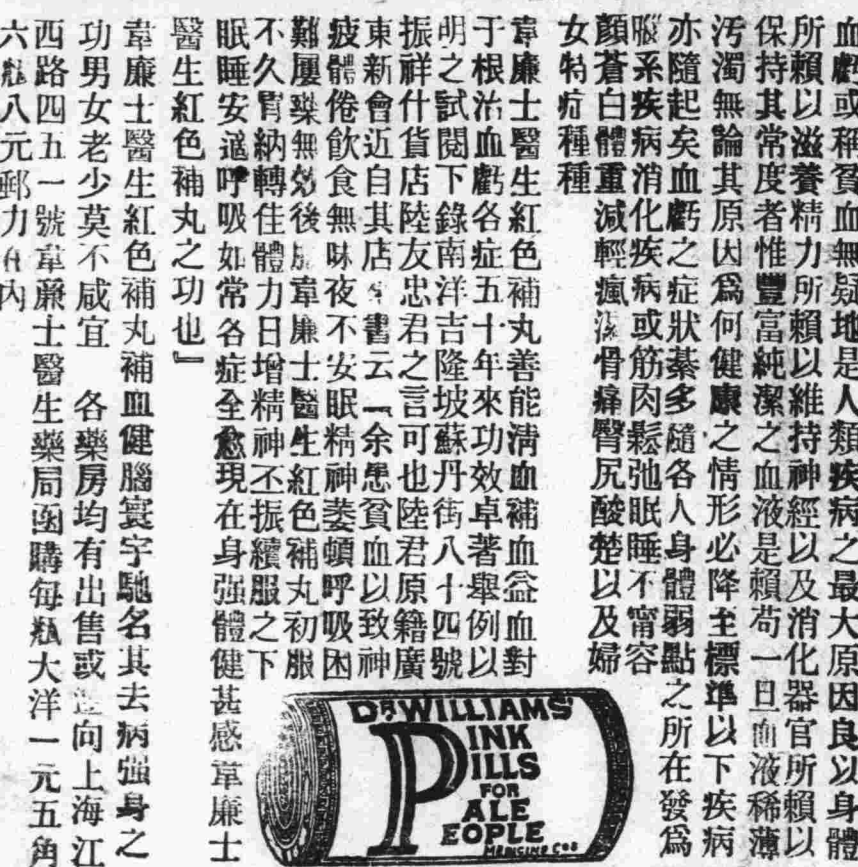 血虧或稱貧血無疑地是人類疾病之最大原因良以身體
所賴以滋養精力所賴以維持神經以及消化器官所賴以
保持其常度者惟豐富純潔之血液是賴苟一旦血液稀薄
汚濁無論其原因爲何健康之情形必降至標準以下疾病
亦隨起矣血虧之症狀綦多隨各人身體弱點之所在發爲
腦系疾病消化疾病或筋肉鬆弛眠睡不甯容
顏蒼白體重減輕瘋濕骨痛臀尻酸楚以及婦
女特症種種
韋廉士醫生紅色補丸善能淸血補血益血對
于根治血虧各症五十年來功效卓著舉例以
明之試閱下錄南洋吉隆坡蘇丹街八十四號
振祥什貨店陸友忠君之言可也陸君原籍廣
東新會近自其店書云『余患貧血以致神
疲體倦飲食無味夜不安眠精神萎頓呼吸困
難屢藥無効後服韋廉士醫生紅色補丸初服
不久胃納轉佳體力日增精神丕振續服之下
眠睡安適呼吸如常各症全愈現在身强體健甚感韋廉士
醫生紅色補丸之功也』
韋廉士醫生紅色補丸補血健腦寰宇馳名其去病强身之
功男女老少莫不咸宜 各藥房均有出售或向上海江
西路四五一號韋廉士醫生藥局函購每瓶大洋一元五角
六瓶八元郵力在內
DR WILLIAMS'
PINK
PILLS
FOR
PALE
PEOPLE
MEDICINE CO